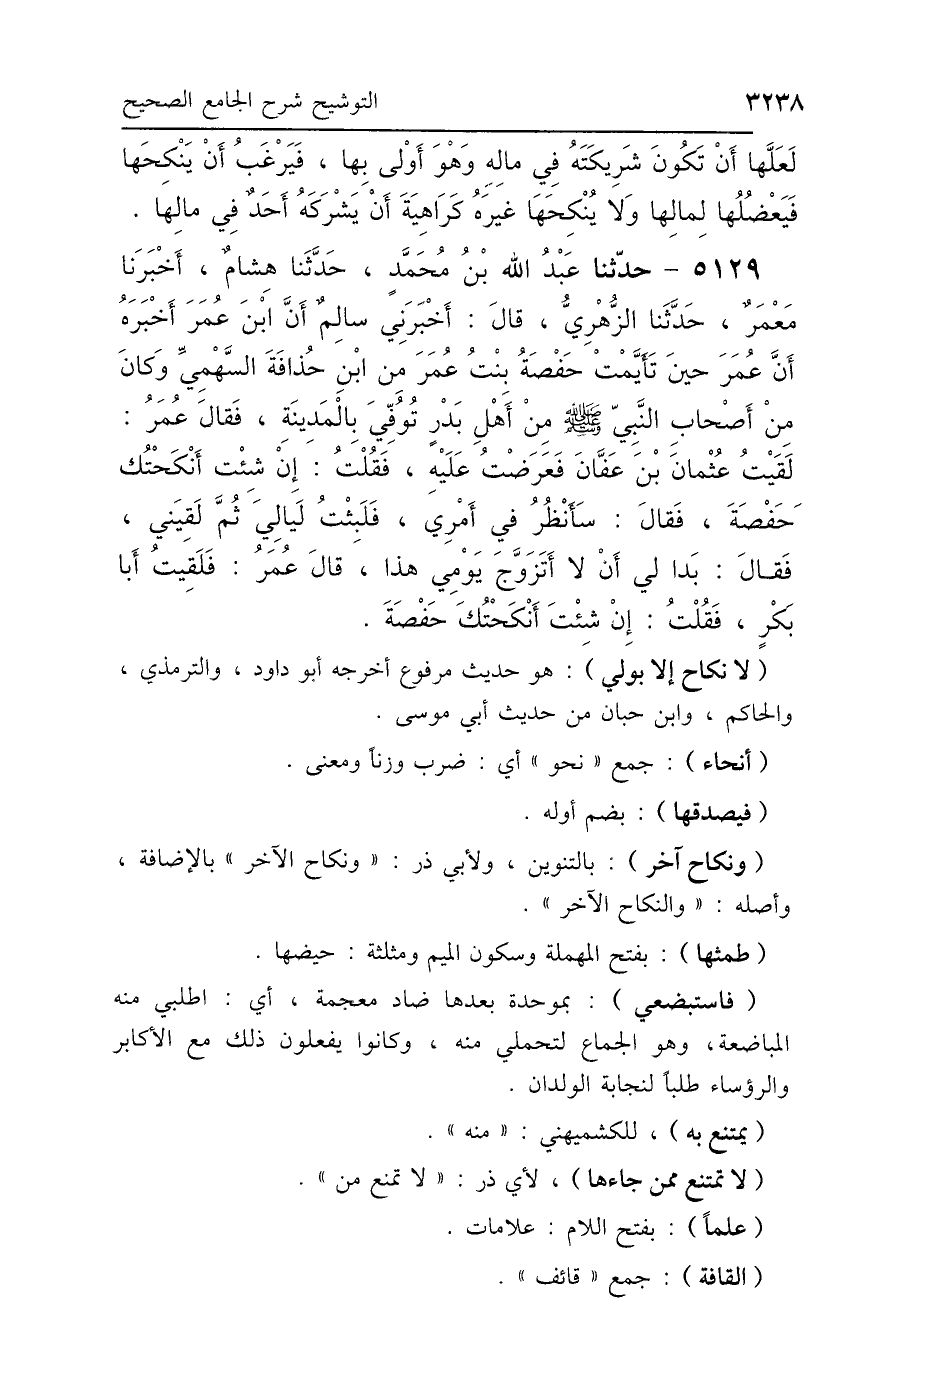 ٣٢٣٨ التوشيح شرح الجامع الصحيح
لَعَلَّها أَنْ تَكُونَ شَرِيكَتَهُ فِي مالِهِ وَهْوَ أَوْلى بِها ، فَيَرْغَبُ أَنْ يَنْكِحَها
فَيَعْضُلُها لِمالِها وَلَا يُنْكِحَهَا غيرَهُ كَرَاهِيَةَ أَنْ يَشْرَكَهُ أحَدٌ فِي مالِها .
٥١٢٩ - حدّثنا عَبْدُ الله بْنُ مُحَمَّدٍ ، حَدَّثَنا هِشامٌ ، أَخْبَرَنا
مَعْمَرٌ ، حَدَّثَنا الزُّهْرِيُّ ، قالَ : أَخْبَرَنِي سالِمٌ أَنَّ ابْنَ عُمَرَ أَخْبَرَهُ
أَنَّ عُمَرَ حينَ تَأَيَّمَتْ حَفْصَةُ بِنْتُ عُمَرَ مِن ابْنِ حُذافَةَ السَّهْمِيِّ وَكانَ
مِنْ أَصْحابِ النَّبِيّ ﷺ مِنْ أَهْلِ بَدْرٍ تُوُفِّيَ بِالْمَدِينَةِ ، فَقالَ عُمَرُ :
لَقَيْتُ عُثْمانَ بْنَ عَفَّانَ فَعَرَضْتُ عَلَيْهِ ، فَقُلْتُ : إِنْ شِئْتَ أَنْكَحْتُك
حَفْصَةَ ، فَقالَ : سَأَنْظُرُ فِي أَمْرِي ، فَلَبِثْتُ لَيالِيَ ثُمَّ لَقِيَنِي ،
فَقـالَ : بَدا لي أَنْ لا أَتَزَوَّجَ يَوْمِي هذا ، قالَ عُمَرُ : فَلَقِيتُ أَبا
بَكْرٍ ، فَقُلْتُ : إِنْ شِئْتَ أَنْكَحْتُكَ حَفْصَةَ .
( لا نكاح إلا بولي ) : هو حديث مرفوع أخرجه أبو داود ، والترمذي ،
والحاكم ، وابن حبان من حديث أبي موسى .
( أنحاء ) : جمع « نحو » أي : ضرب وزناً ومعنى .
( فيصدقها ) : بضم أوله .
( ونكاح آخر ) : بالتنوين ، ولأبي ذر : « ونكاح الآخر » بالإضافة ،
وأصله : « والنكاح الآخر » .
( طمثها ) : بفتح المهملة وسكون الميم ومثلثة : حيضها .
( فاستبضعي ) : بموحدة بعدها ضاد معجمة ، أي : اطلبي منه
المباضعة، وهو الجماع لتحملي منه ، وكانوا يفعلون ذلك مع الأكابر
والرؤساء طلباً لنجابة الولدان .
( يمتنع به ) ، للكشميهني : « منه » .
( لا تمتنع ممن جاءها ) ، لأي ذر : « لا تمنع من » .
( علماً ) : بفتح اللام : علامات .
( القافة ) : جمع « قائف » .